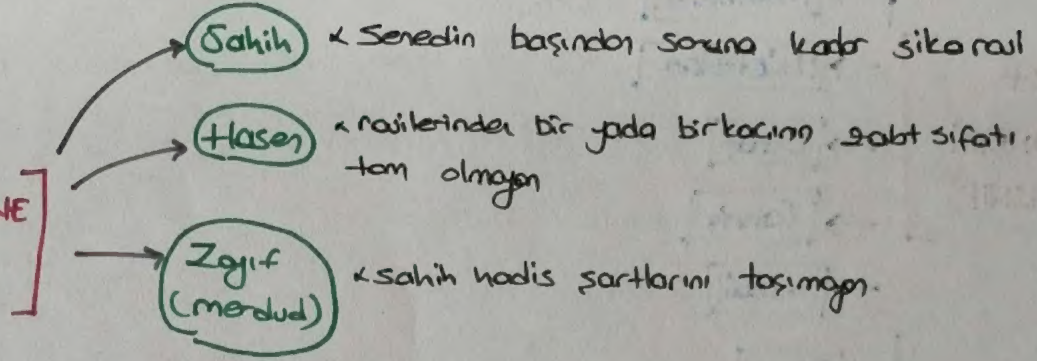 Sahih × Senedin başından sonuna kadar sika ravi
Hasen × ravilerinden bir yada birkaçının zabt sıfatı
tam olmayan
Zayıf
(merdud) × sahih hadis şartlarını taşımayan.